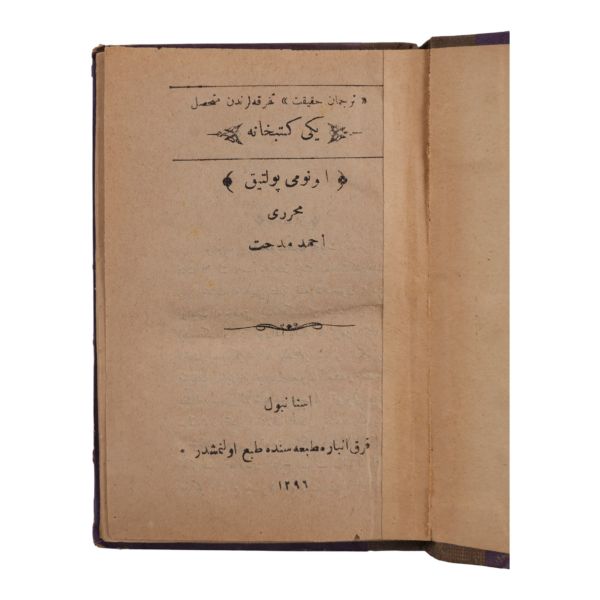 « ترجمان حقیقت » تفرقه‌لرندن متحصل
یکی کتبخانه
﴿ اونومی پولتیق ﴾
محرری
احمد مدحت
استانبول
قرق انبار مطبعه سنده طبع اولنمشدر .
١٢٩٦